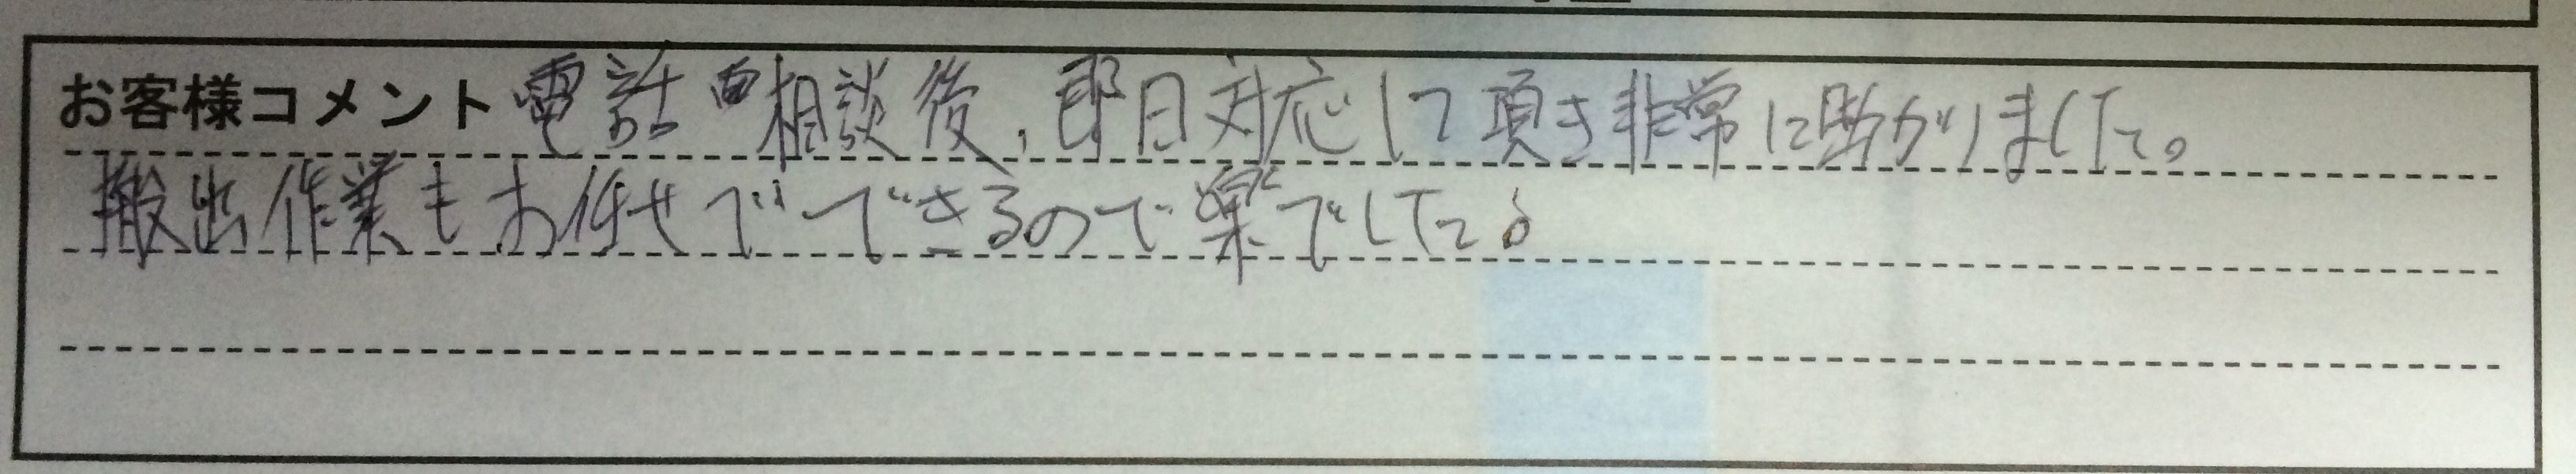 お客様コメント 電話相談後、即日対応して頂き非常に助かりました。
搬出作業もお任せでできるので楽でした。